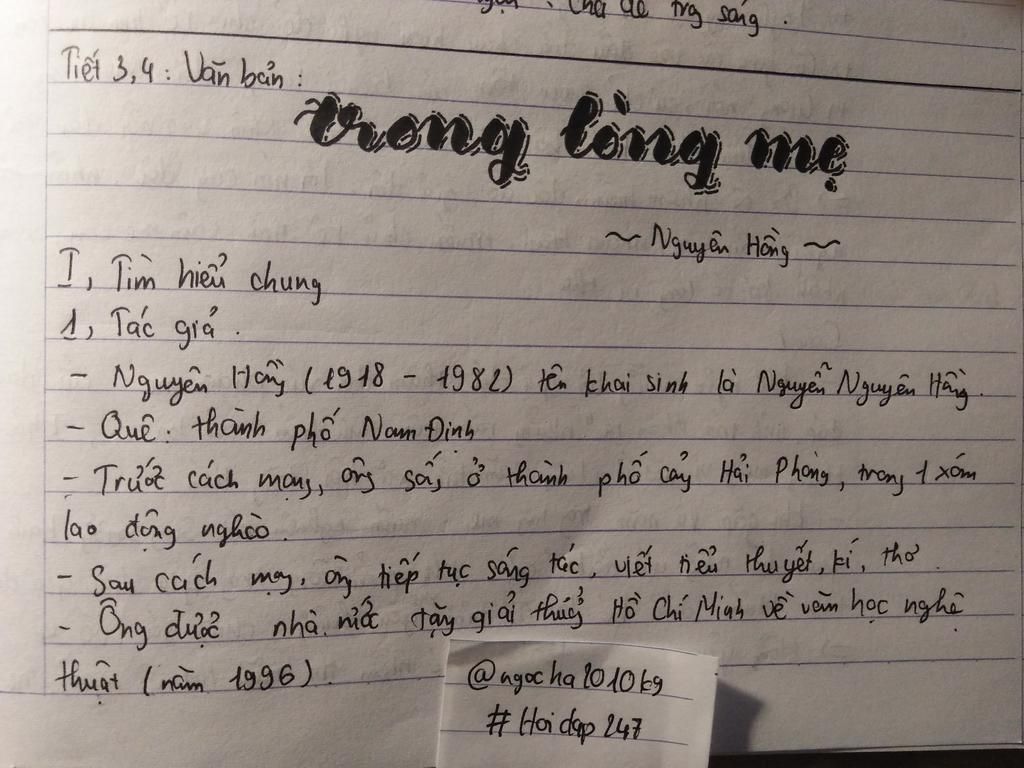 ngọn . Chả để trg sáng .
Tiết 3,4 : Văn bản :
trong lòng mẹ
~ Nguyên Hồng ~
I, Tìm hiểu chung
1, Tác giả .
- Nguyên Hồng (1918 - 1982) tên khai sinh là Nguyễn Nguyên Hồng.
- Quê : thành phố Nam Định
- Trước cách mạng, ông sống ở thành phố cảng Hải Phòng, trong 1 xóm
lao động nghèo.
- Sau cách mạng, ông tiếp tục sáng tác, viết tiểu thuyết, kí, thơ.
- Ông được nhà nước tặng giải thưởng Hồ Chí Minh về văn học nghệ
thuật (năm 1996).
@ngocha2010kg
# Hoidap247